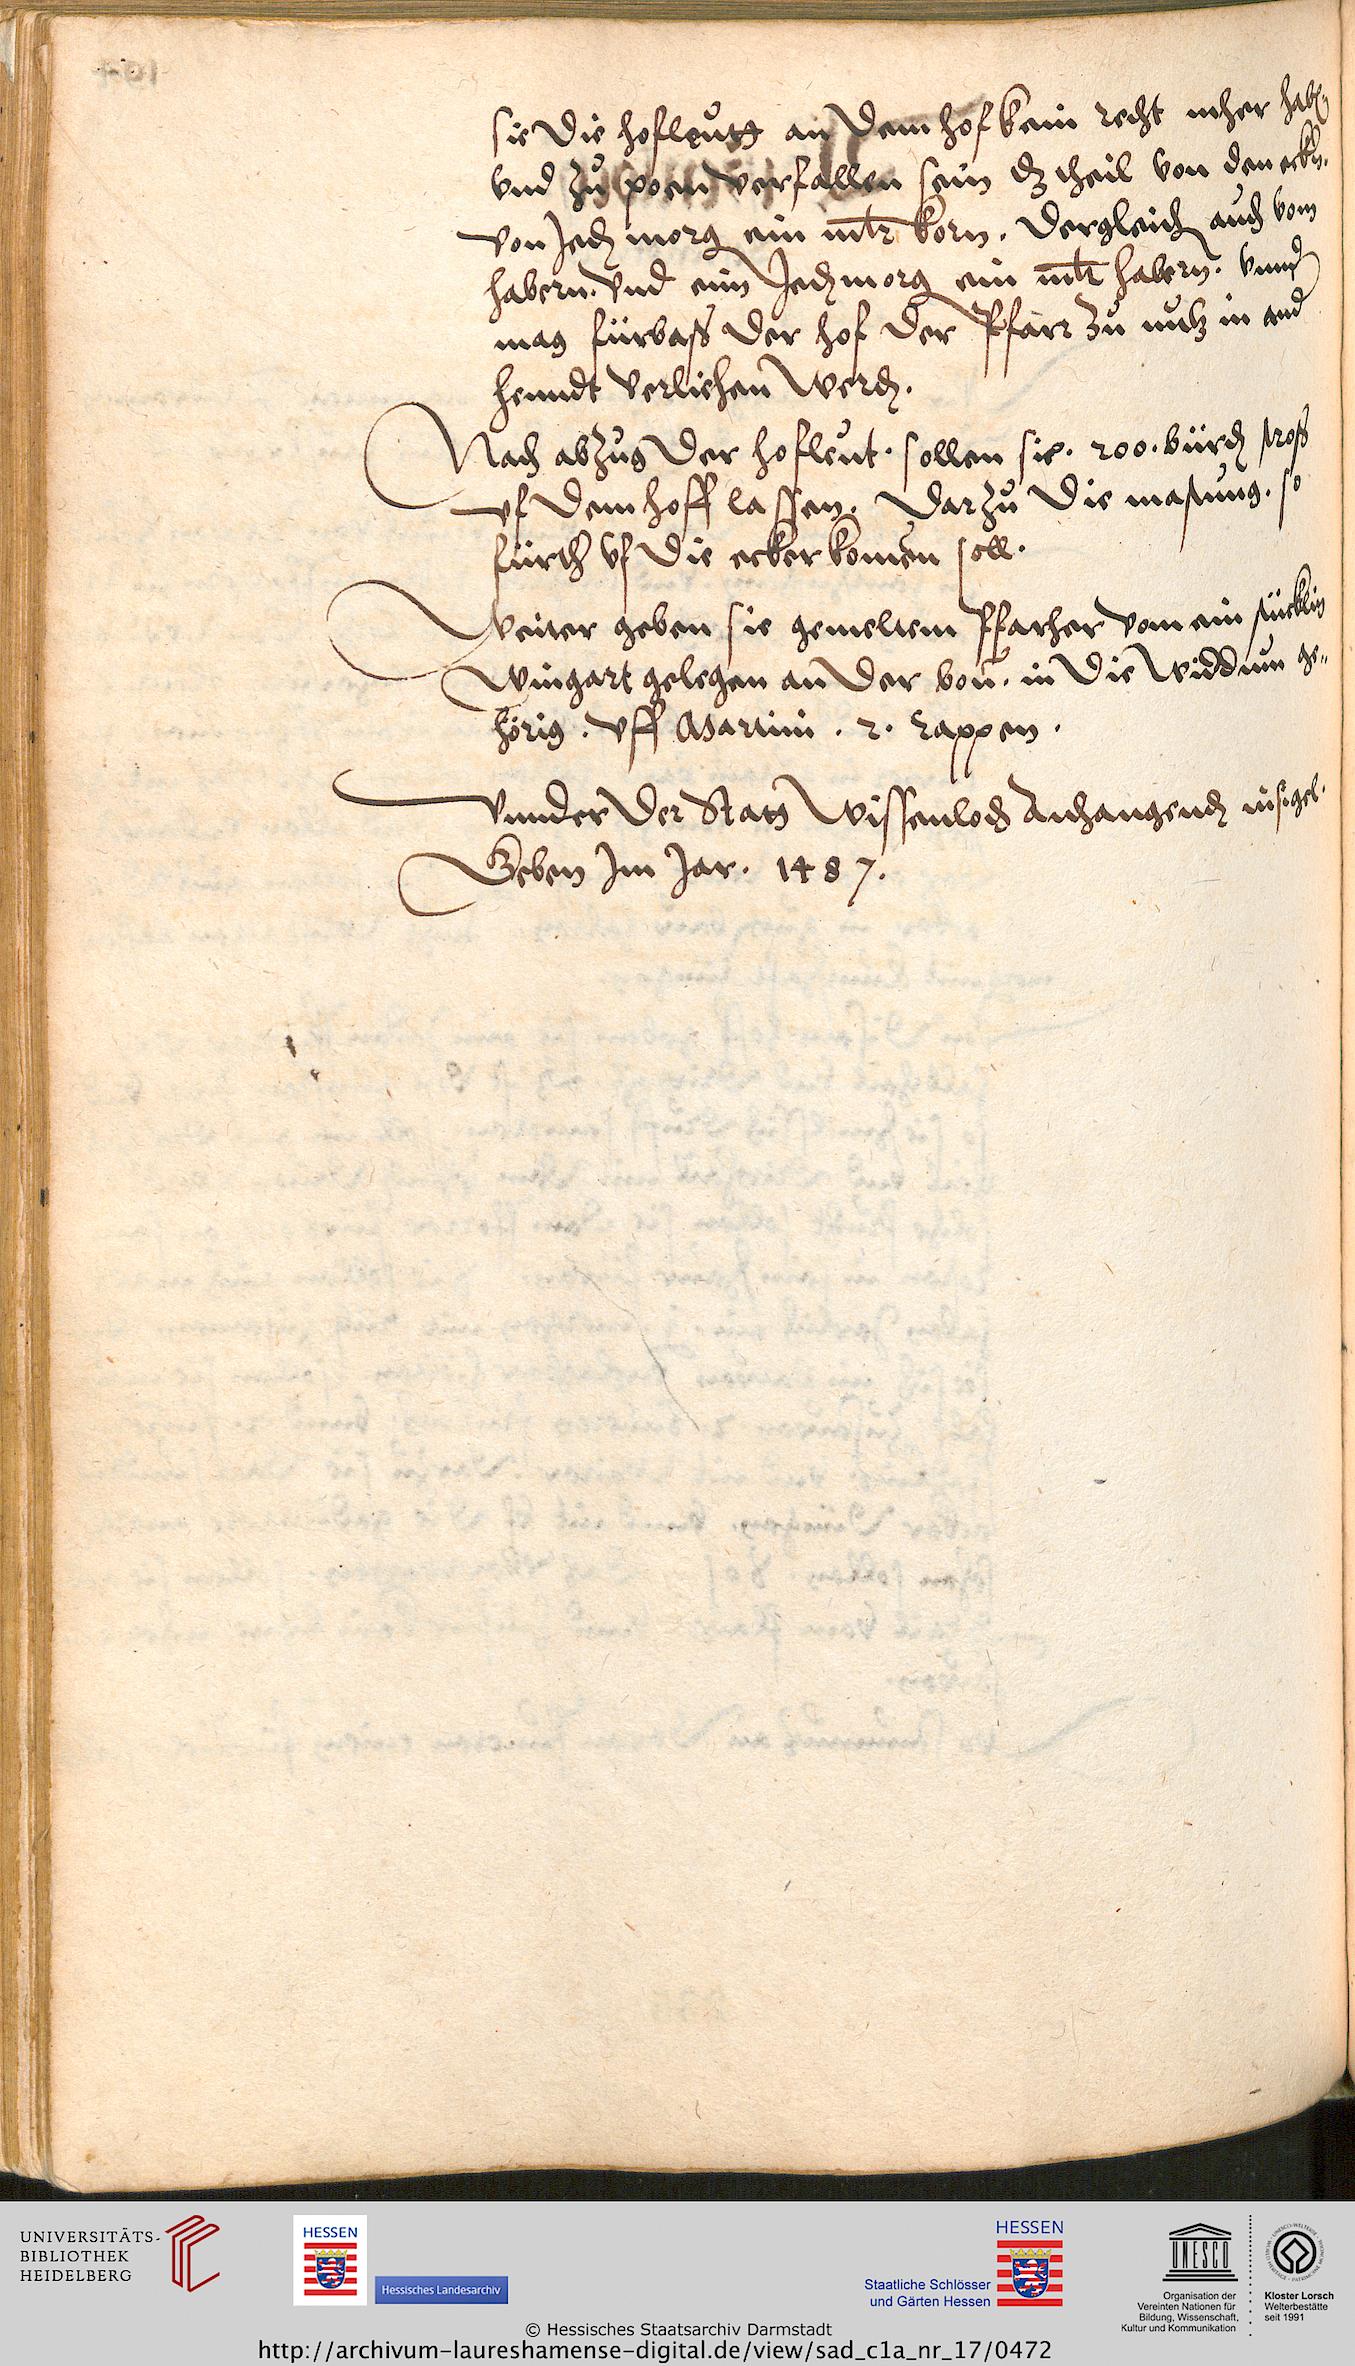 sie die hofleutt an dem hof kein recht mher hab
vnd zu poen verfallen sein dz theil von den eckn.
von Jedn morg ein mltr korn. dergleich auch vom
habern. vnd ein Jedn morg ein mltr habern. vnnd
mag fürbaß der hof der Pfarr zu nutz in and
henndt verliehen werdn.
Nach abzug der hofleut. sollen sie. 200. bürdn stroß
vf dem hoff lassen. Darzu die mastung. so
fürth vf die ecker komen soll.
Weiter geben sie gemeltem Pfarher vom ein stücklin
Wingart gelegen an der in die Widdum ge=
hörig. vff Martini. 2. Cappen.
Vnnder der Statt Wissenloch Anhangendn insigel.
Geben Im Jar. 1487.
UNIVERSITÄTS-
BIBLIOTHEK
HEIDELBERG
HESSEN
Hessisches Landesarchiv
HESSEN
Staatliche Schlösser
und Gärten Hessen
UNESCO
Organisation der
Vereinten Nationen für
Bildung, Wissenschaft,
Kultur und Kommunikation
Kloster Lorsch
Welterbestätte
seit 1991
© Hessisches Staatsarchiv Darmstadt
http://archivum-laureshamense-digital.de/view/sad_c1a_nr_17/0472